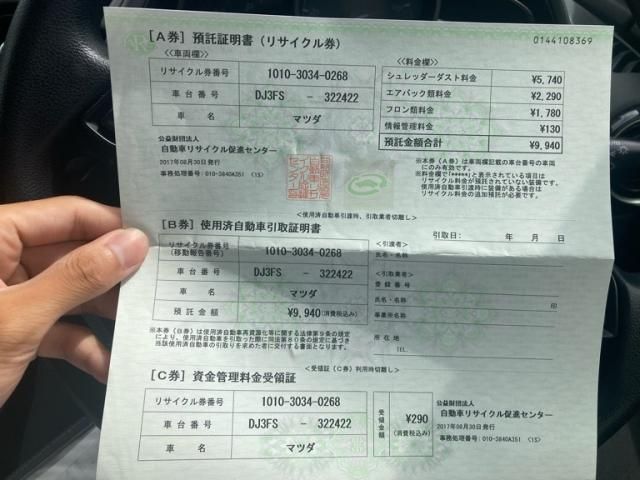 0144108369
[A券] 預託証明書(リサイクル券)
≪車両欄≫
リサイクル券番号 1010-3034-0268
車台番号 DJ3FS - 322422
車名 マツダ
≪料金欄≫
シュレッダーダスト料金 ¥5,740
エアバッグ類料金 ¥2,290
フロン類料金 ¥1,780
情報管理料金 ¥130
預託金額合計 ¥9,940
公益財団法人
自動車リサイクル促進センター
2017年08月30日発行
事務処理番号:010-3840A351 <1S>
※本券(A券)は車両欄記載の車台番号の車両
にのみ有効です。
※料金欄で「*****」と表示されている項目は
リサイクル料金が預託されていない装備です。
使用済自動車引渡時に装備がある場合は
リサイクル料金の追加預託が必要です。
<使用済自動車引渡時、引取業者切離し>
[B券] 使用済自動車引取証明書
引取日: 年 月 日
リサイクル券番号
(移動報告番号) 1010-3034-0268
車台番号 DJ3FS - 322422
車名 マツダ
預託金額 ¥9,940(消費税込み)
<引渡者>
氏名・名称
<引取業者>
登録番号
氏名・名称 印
事業所名称
所在地
TEL
※本券(B券)は使用済自動車再資源化等に関する法律第9条の規定
により、使用済自動車を引取った際に同法第80条の規定に基づき
当該使用済自動車の引取りを求めた者に交付する書面となります。
<受領証(C券)利用時切離し>
[C券] 資金管理料金受領証
リサイクル券番号 1010-3034-0268
車台番号 DJ3FS - 322422
車名 マツダ
受領金額 ¥290
(消費税込み)
公益財団法人
自動車リサイクル促進センター
2017年08月30日発行
事務処理番号:010-3840A351 <1S>